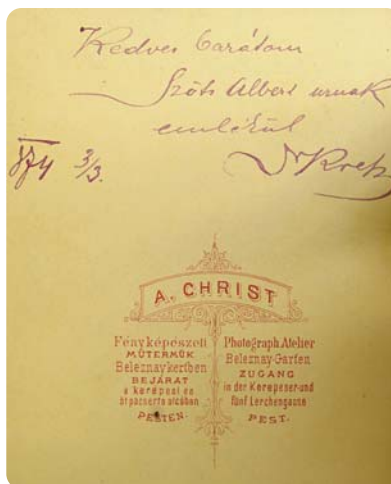 Kedves barátom
Szőts Albert urnak
emlékül
874 3/3.
Dr Kretz
A. CHRIST
Fényképészeti
MŰTERMÜK
Beleznaykertben
BEJÁRAT
a kerepesi és
ötpacserta utcában
PESTEN.
Photograph Atelier
Beleznay-Garten
ZUGANG
in der Kerepeser-und
fünf Lerchengasse
PEST.